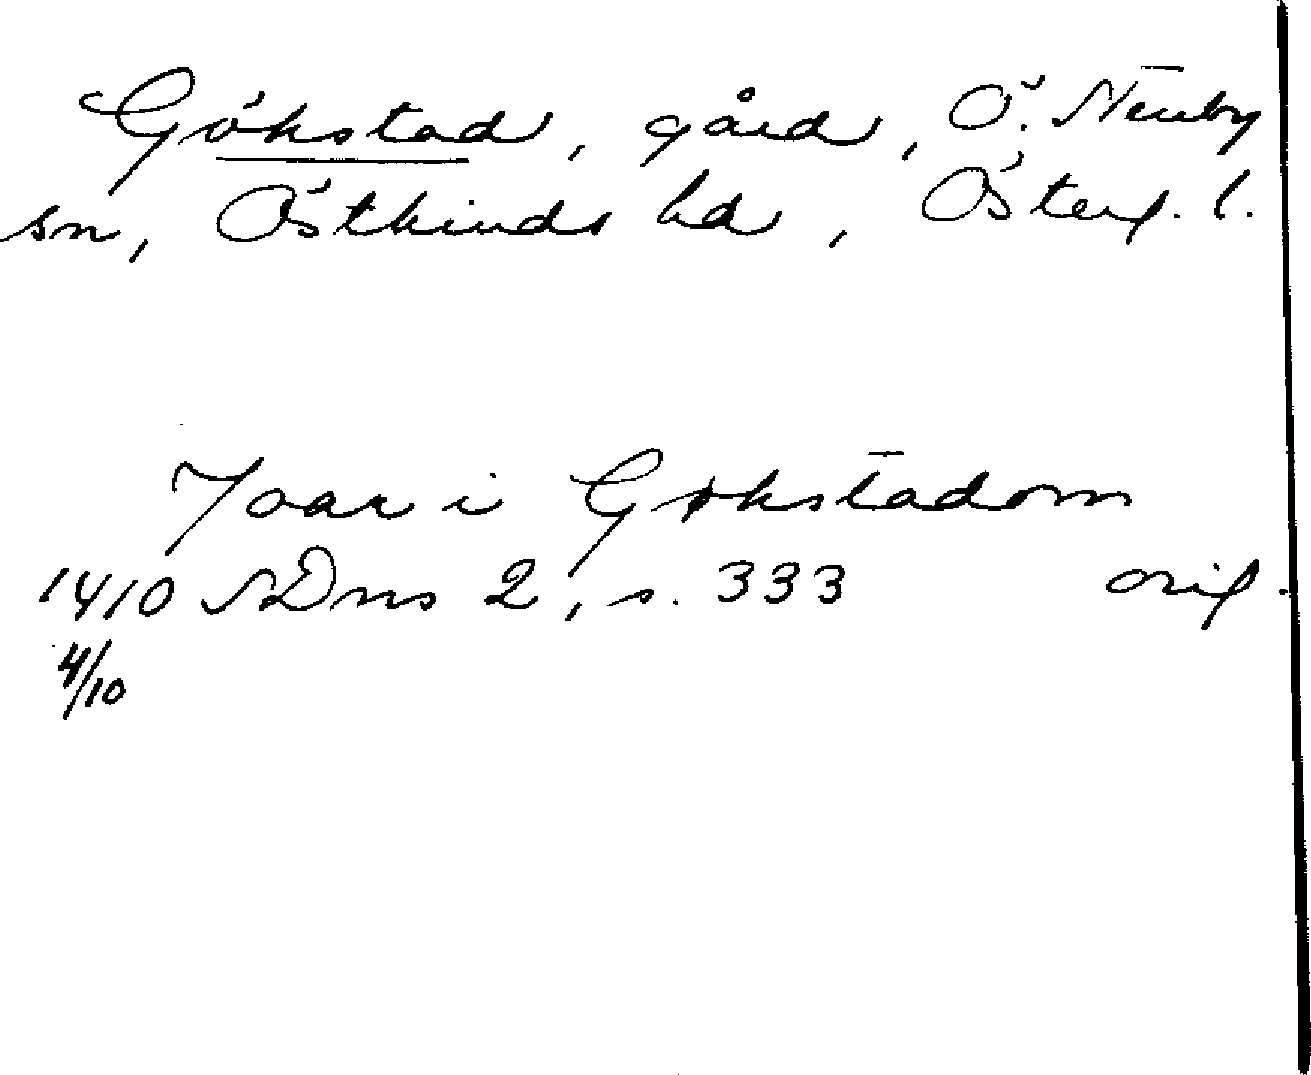 Gökstad, gård, Ö. Nēuby
sn, Östkinds hd, Österg. l.
Joar i Gøkstadom
1410 SDns 2, s. 333 orig.
4/10